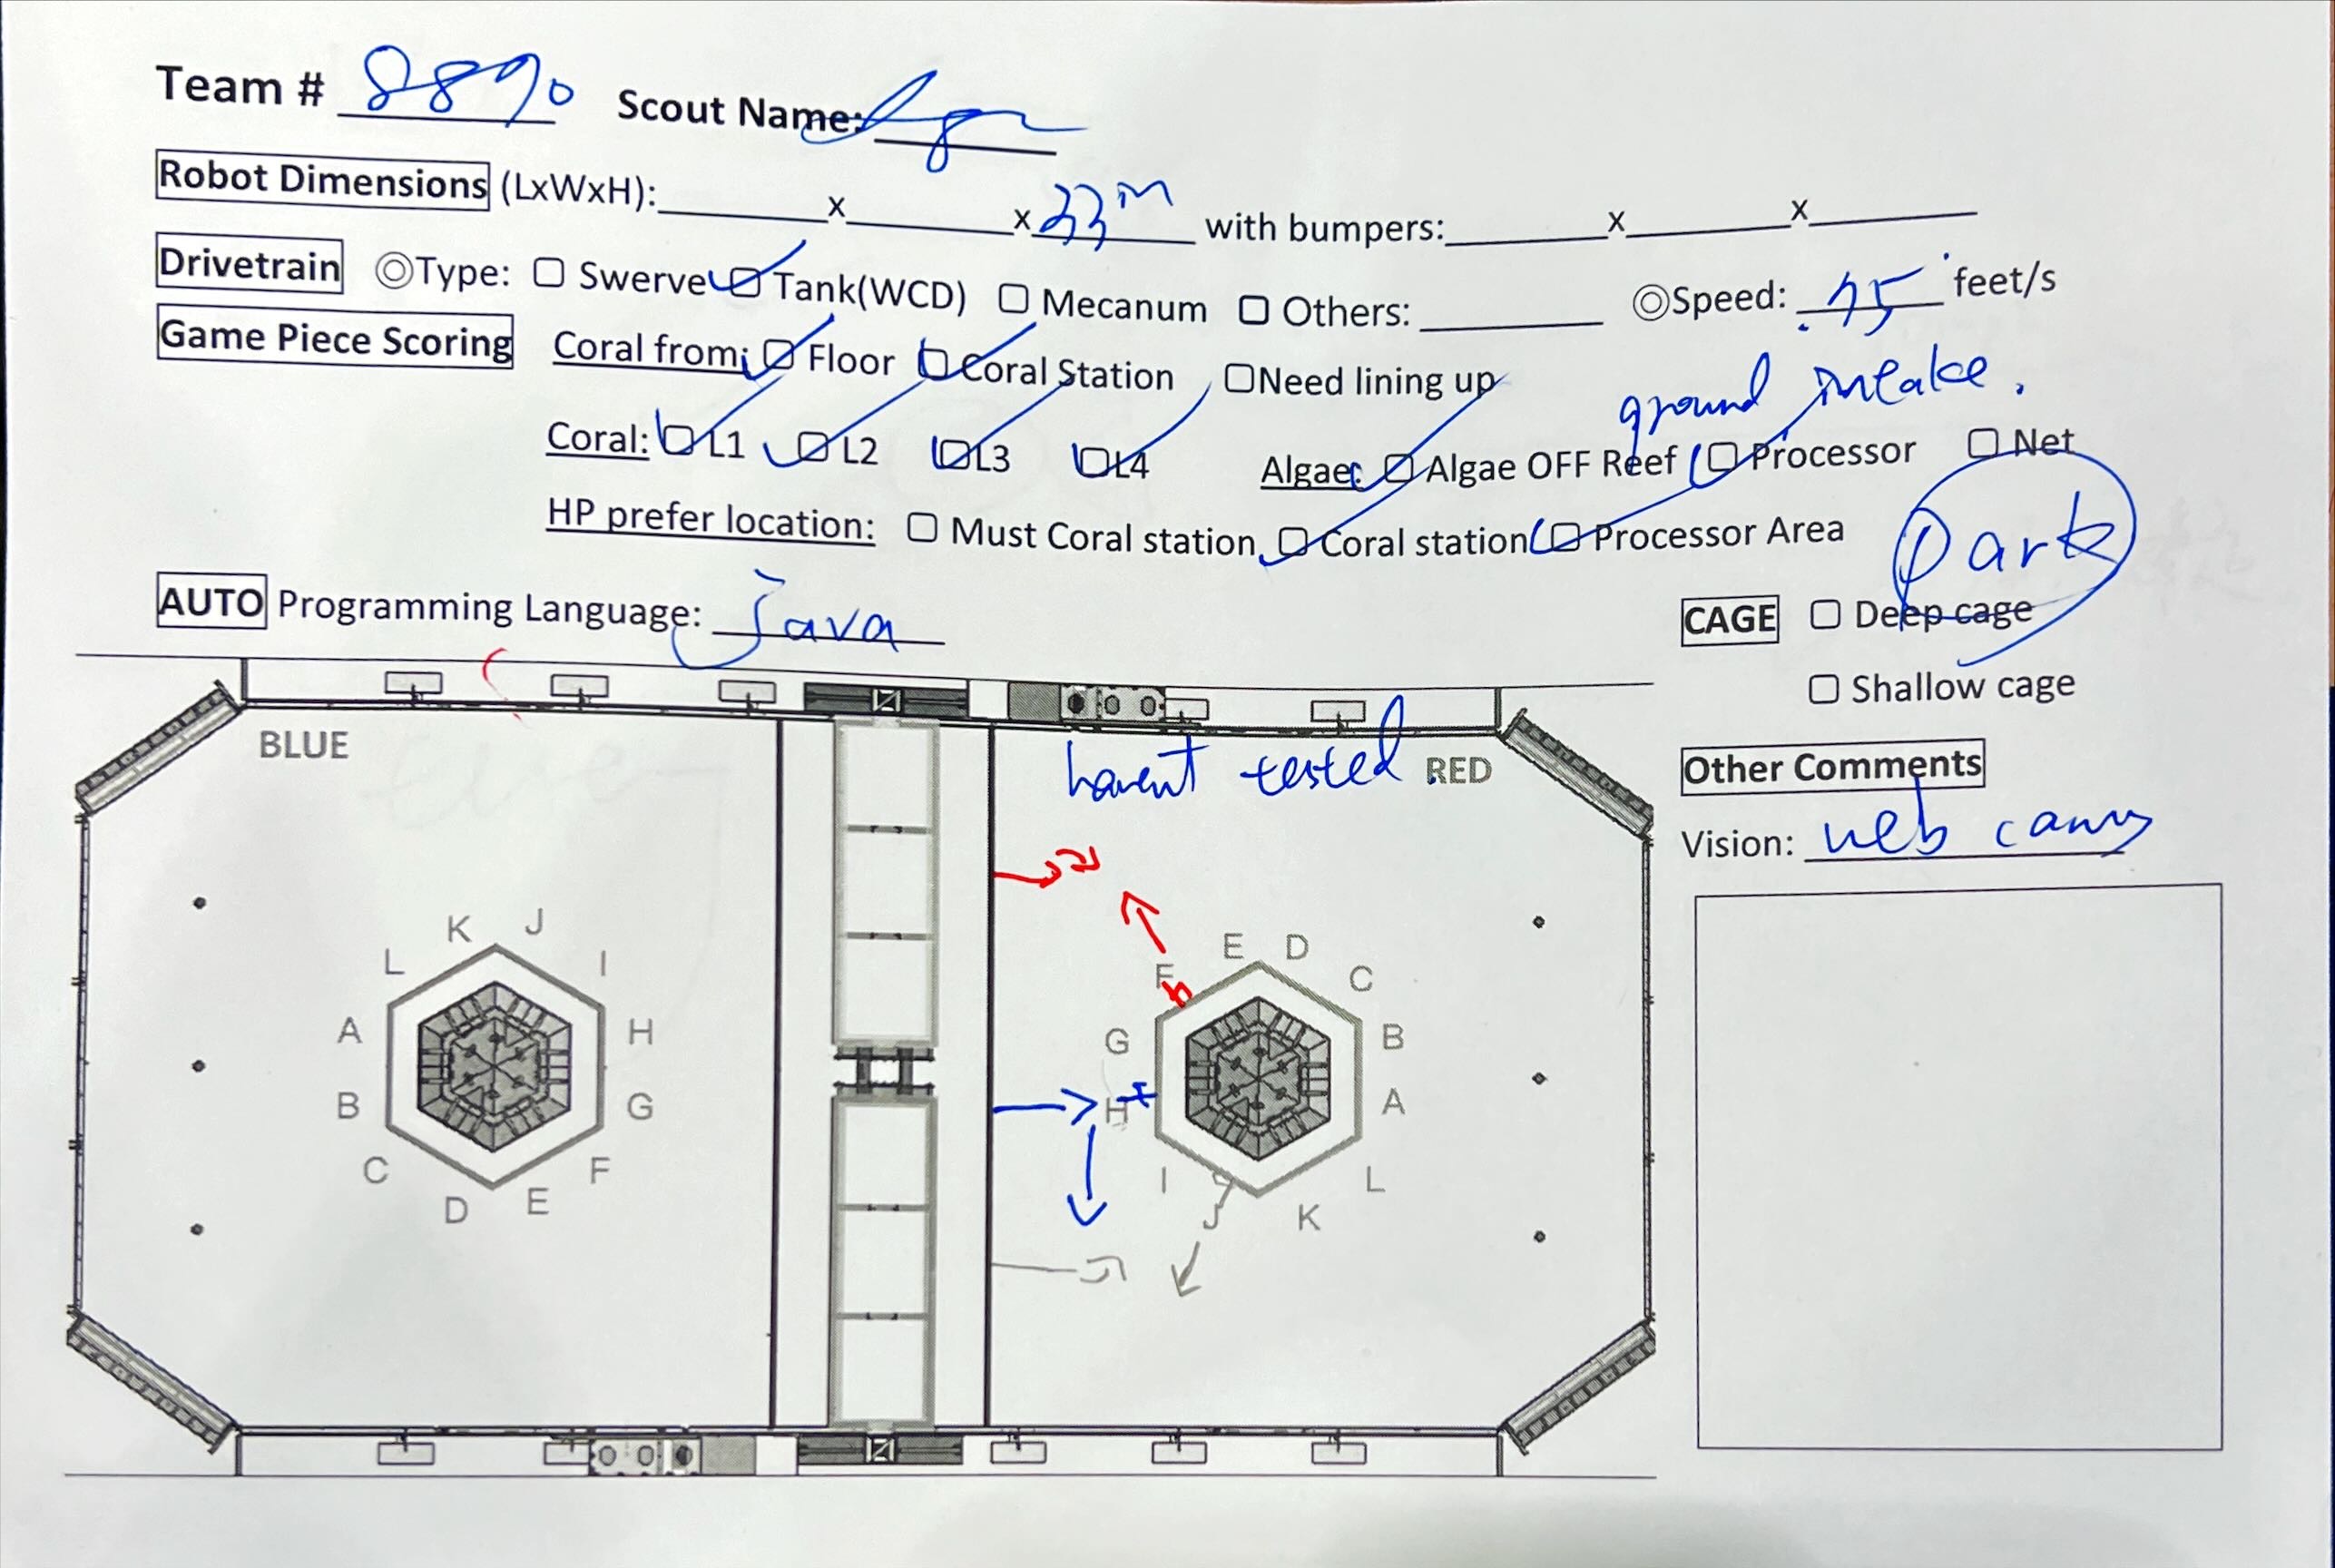 Team # 8890 Scout Name:
Robot Dimensions (LxWxH): x x 33 in with bumpers: x x
Drivetrain ◎Type: ☐ Swerve ☑ Tank(WCD) ☐ Mecanum ☐ Others: ◎Speed: feet/s
Game Piece Scoring Coral from: ☑ Floor ☑ Coral Station ☐Need lining up
ground intake.
Coral: ☑ L1 ☑ L2 ☑ L3 ☑ L4 Algae: ☑ Algae OFF Reef ☑ Processor ☐ Net
HP prefer location: ☐ Must Coral station ☑ Coral station ☑ Processor Area
Park
AUTO Programming Language: Java
CAGE ☐ Deep cage
☐ Shallow cage
BLUE
havent tested RED
Other Comments
Vision: web cam
K J
L I
A H
B G
C F
D E
E D
F C
G B
H A
I L
J K